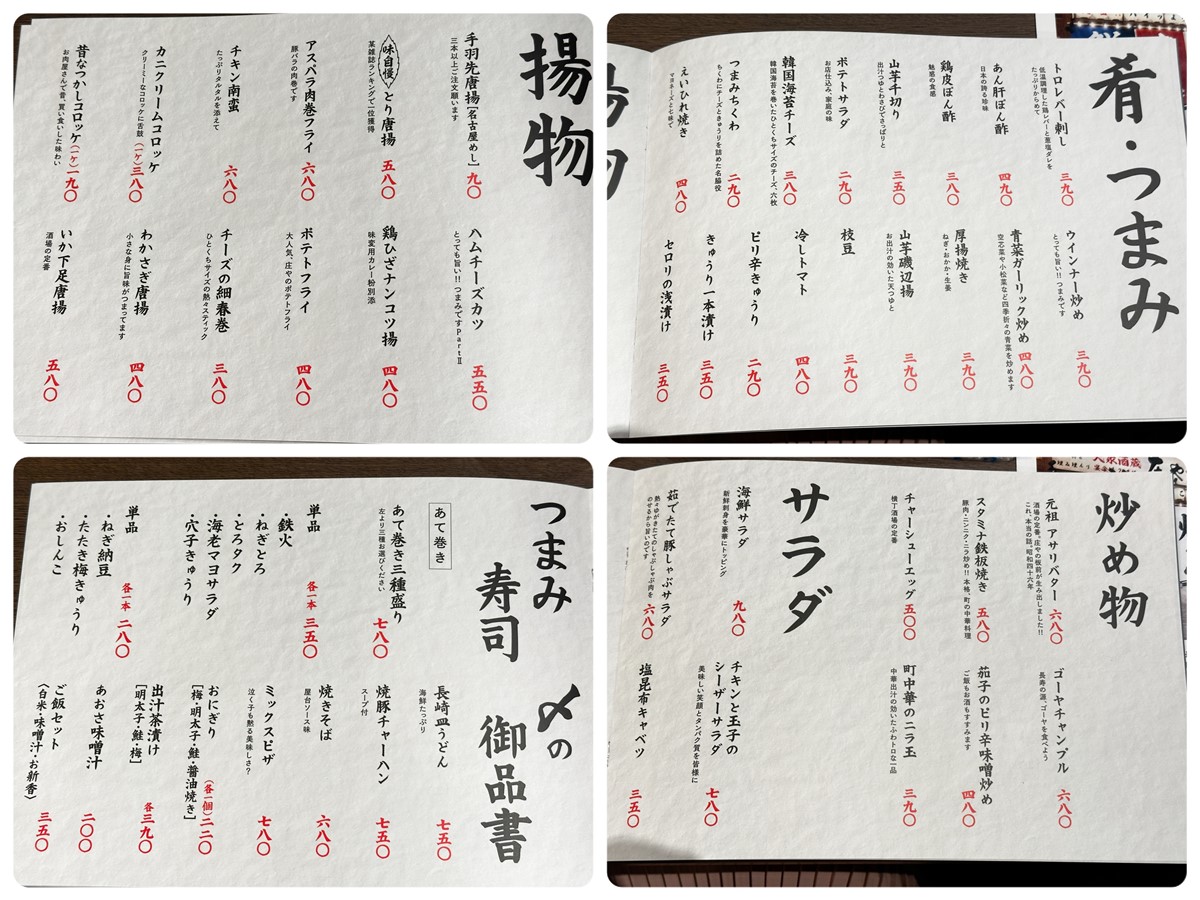 揚物
手羽先唐揚[名古屋めし]
三本以上ご注文願います
九〇
味自慢
とり唐揚
某雑誌ランキングで一位獲得
五八〇
アスパラ肉巻フライ
豚バラの肉巻です
六八〇
チキン南蛮
たっぷりタルタルを添えて
六八〇
カニクリームコロッケ
クリーミーなコロッケに舌鼓
(一ケ)三八〇
昔なつかしコロッケ
お肉屋さんで昔、買い食いした味わい
(一ケ)一九〇
ハムチーズカツ
とっても旨い!! つまみですPartⅡ
五五〇
鶏ひざナンコツ揚
味変用カレー粉別添
四八〇
ポテトフライ
大人気、庄やのポテトフライ
四八〇
チーズの細春巻
ひとくちサイズの熱々スティック
三八〇
わかさぎ唐揚
小さな身に旨味がつまってます
四八〇
いか下足唐揚
酒場の定番
五八〇
肴・つまみ
トロレバー刺し
低温調理した鶏レバーと葱塩ダレを
たっぷりからめて
三九〇
あん肝ぽん酢
日本の誇る珍味
四九〇
鶏皮ぽん酢
魅惑の食感
三八〇
山芋千切り
出汁つゆとわさびでさっぱりと
三五〇
ポテトサラダ
お店仕込み、家庭の味
二九〇
韓国海苔チーズ
韓国海苔を巻いたひとくちサイズのチーズ、六枚
三八〇
つまみちくわ
ちくわにチーズときゅうりを詰めた名脇役
二九〇
えいひれ焼き
マヨネーズと七味で
四八〇
ウインナー炒め
とっても旨い!! つまみです
三九〇
青菜ガーリック炒め
空芯菜や小松菜など四季折々の青菜を炒めます
四八〇
厚揚焼き
ねぎ・おかか・生姜
三九〇
山芋磯辺揚
お出汁の効いた天つゆと
三九〇
枝豆
三九〇
冷しトマト
四八〇
ピリ辛きゅうり
二九〇
きゅうり一本漬け
三五〇
セロリの浅漬け
三五〇
つまみ
寿司
あて巻き
あて巻き三種盛り
左より三種お選びください
七八〇
単品
・鉄火
・ねぎとろ
・とろタク
・海老マヨサラダ
・穴子きゅうり
各一本 三五〇
単品
・ねぎ納豆
・たたき梅きゅうり
・おしんこ
各一本 二八〇
〆の
御品書
長崎皿うどん
海鮮たっぷり
七五〇
焼豚チャーハン
スープ付
七五〇
焼きそば
屋台ソース味
六八〇
ミックスピザ
泣く子も黙る美味しさ?
七八〇
おにぎり
[梅・明太子・鮭・醤油焼き]
(各一個)二二〇
出汁茶漬け
[明太子・鮭・梅]
各三九〇
あおさ味噌汁
二〇〇
ご飯セット
(白米・味噌汁・お新香)
三五〇
炒め物
元祖 アサリバター
酒場の定番。庄やの板前が生み出しました!!
これ、本当の話。昭和四十六年
六八〇
スタミナ鉄板焼き
豚肉・ニンニク・ニラ炒め!! 本格、町の中華料理
五八〇
チャーシューエッグ
横丁酒場の定番
五〇〇
ゴーヤチャンプル
長寿の源、ゴーヤを食べよう
六八〇
茄子のピリ辛味噌炒め
ご飯もお酒もすすみます
四八〇
町中華のニラ玉
中華出汁の効いたふわトロな一品
三九〇
サラダ
海鮮サラダ
新鮮刺身を豪華にトッピング
九八〇
茹でたて豚しゃぶサラダ
熱々ゆがきたてのしゃぶしゃぶ肉を
のせるから旨いのです
六八〇
チキンと玉子の
シーザーサラダ
美味しい笑顔とタンパク質を皆様に
七八〇
塩昆布キャベツ
三五〇
大衆酒蔵